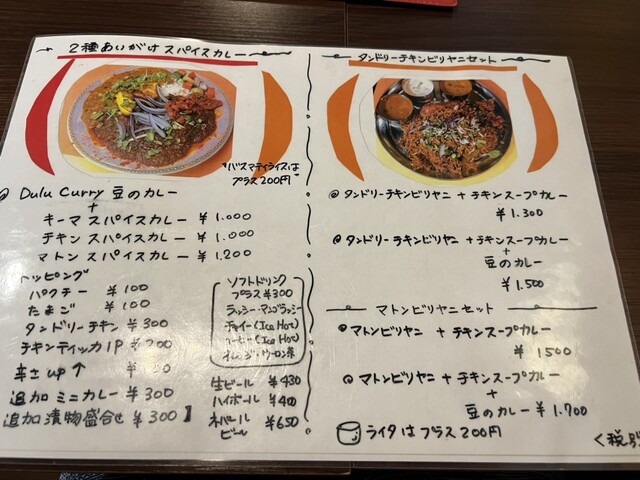 2種あいがけ スパイスカレー
*バスマティライスは
プラス200円
@ Dulu Curry 豆のカレー
+
キーマ スパイスカレー ¥1.000
チキン スパイスカレ ¥1.000
マトン スパイスカレー ¥1.200
トッピング
パクチー ¥100
たまご ¥100
タンドリーチキン ¥300
チキンティッカ1P ¥200
辛さup↑ ¥
追加ミニカレー ¥300
追加漬物盛合せ ¥300
ソフトドリンク
プラス¥300
ラッシー・マンゴラッシー
チャイー(Ice Hot)
コーヒー(Ice Hot)
オレンジ・ウーロン茶
生ビール ¥430
ハイボール ¥400
ネパール
ビール ¥650
タンドリーチキンビリヤニセット
@タンドリーチキンビリヤニ + チキンスープカレー
¥1.300
@タンドリーチキンビリヤニ + チキンスープカレー
+
豆のカレー
¥1.500
マトンビリヤニセット
@マトンビリヤニ + チキンスープカレー
¥1500
@マトンビリヤニ + チキンスープカレー
+
豆のカレー ¥1.700
ライタはプラス200円
<税別